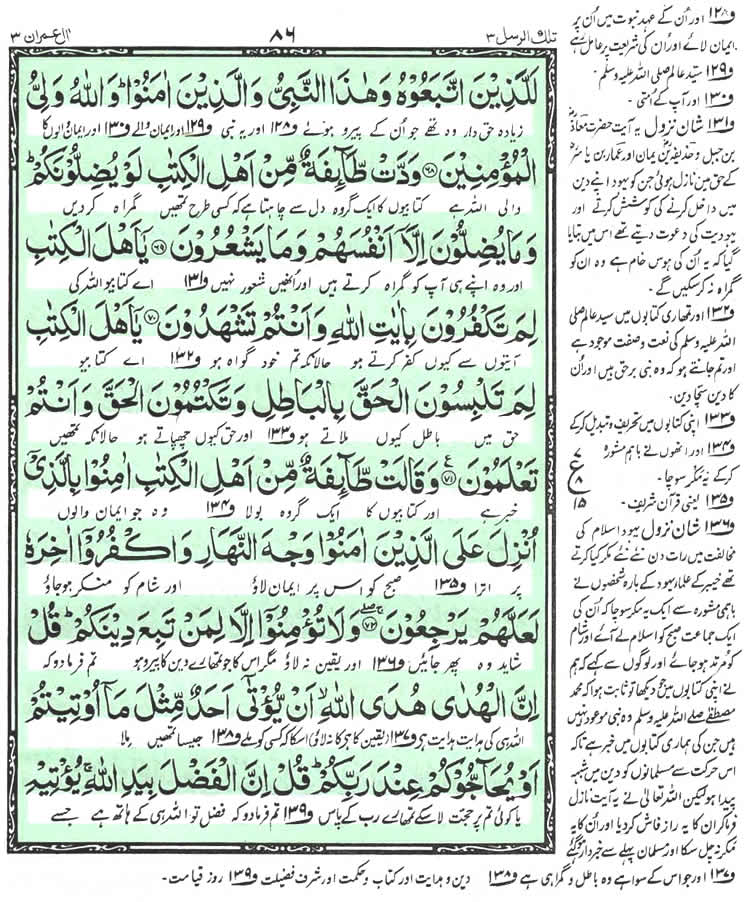 اٰل عمران ٣
٨٦
تلك الرسل ٣
لَلَّذِيْنَ اتَّبَعُوْهُ وَهٰذَا النَّبِىُّ وَالَّذِيْنَ اٰمَنُوْا ؕ وَاللّٰهُ وَلِىُّ
زیادہ حق دار وہ تھے جو اُن کے پیرو ہوئے و۱۲۸ اور یہ نبی و۱۲۹ اور ایمان والے و۱۳۰ اور ایمان والوں کا
الْمُؤْمِنِيْنَ ﴿۶۸﴾ وَدَّتْ طَّآئِفَةٌ مِّنْ اَهْلِ الْكِتٰبِ لَوْ يُضِلُّوْنَكُمْ ؕ
والی اللہ ہے کتابیوں کا ایک گروہ دل سے چاہتا ہے کہ کسی طرح تمھیں گمراہ کردیں
وَمَا يُضِلُّوْنَ اِلَّاۤ اَنْفُسَهُمْ وَمَا يَشْعُرُوْنَ ﴿۶۹﴾ يٰۤاَهْلَ الْكِتٰبِ
اور وہ اپنے ہی آپ کو گمراہ کرتے ہیں اور انھیں شعور نہیں و۱۳۱ اے کتابیو اللہ کی
لِمَ تَكْفُرُوْنَ بِاٰيٰتِ اللّٰهِ وَاَنْتُمْ تَشْهَدُوْنَ ﴿۷۰﴾ يٰۤاَهْلَ الْكِتٰبِ
آیتوں سے کیوں کفر کرتے ہو حالانکہ تم خود گواہ ہو و۱۳۲ اے کتابیو
لِمَ تَلْبِسُوْنَ الْحَقَّ بِالْبَاطِلِ وَتَكْتُمُوْنَ الْحَقَّ وَاَنْتُمْ
حق میں باطل کیوں ملاتے ہو و۱۳۳ اور حق کیوں چھپاتے ہو حالانکہ تمھیں
تَعْلَمُوْنَ ﴿۷۱﴾ ع وَقَالَتْ طَّآئِفَةٌ مِّنْ اَهْلِ الْكِتٰبِ اٰمِنُوْا بِالَّذِىْۤ
خبر ہے اور کتابیوں کا ایک گروہ بولا و۱۳۴ وہ جو ایمان والوں
اُنْزِلَ عَلَى الَّذِيْنَ اٰمَنُوْا وَجْهَ النَّهَارِ وَاكْفُرُوْۤا اٰخِرَهٗ
پر اترا و۱۳۵ صبح کو اس پر ایمان لاؤ اور شام کو منکر ہوجاؤ
لَعَلَّهُمْ يَرْجِعُوْنَ ﴿۷۲﴾ وَلَا تُؤْمِنُوْۤا اِلَّا لِمَنْ تَبِعَ دِيْنَكُمْ ؕ قُلْ
شاید وہ پھر جائیں و۱۳۶ اور یقین نہ لاؤ مگر اس کا جو تمھارے دین کا پیرو ہو تم فرمادو کہ
اِنَّ الْهُدٰى هُدَى اللّٰهِ ۙ اَنْ يُّؤْتٰٓى اَحَدٌ مِّثْلَ مَاۤ اُوْتِيْتُمْ
اللہ ہی کی ہدایت ہدایت ہی و۱۳۷ (یقین کاہے کا نہ لاؤ) اسکا کہ کسی کو ملے و۱۳۸ جیسا تمھیں ملا
اَوْ يُحَآجُّوْكُمْ عِنْدَ رَبِّكُمْ ؕ قُلْ اِنَّ الْفَضْلَ بِيَدِ اللّٰهِ ۚ يُؤْتِيْهِ
یا کوئی تم پر حجت لا سکے تمھارے رب کے پاس و۱۳۹ تم فرمادو کہ فضل تو اللہ ہی کے ہاتھ ہے جسے
و۱۲۸ اور اُن کے عہد نبوت میں اُن پر
ایمان لائے اور اُن کی شریعت پر عامل رہے
و۱۲۹ سید عالم صلی اللہ علیہ وسلم۔
و۱۳۰ اور آپ کے اُمتی۔
و۱۳۱ شان نزول یہ آیت حضرت معاذ
بن جبل و حذیفہ بن یمان اور عمار بن یاسر
کے حق میں نازل ہوئی جن کو یہود اپنے دین
میں داخل کرنے کی کوشش کرتے اور
یہودیت کی دعوت دیتے تھے اس میں بتایا
گیا کہ یہ اُن کی ہوس خام ہے وہ ان کو
گمراہ نہ کرسکیں گے۔
و۱۳۲ اور تمھاری کتابوں میں سید عالم صلی
اللہ علیہ وسلم کی نعت وصفت موجود ہے
اور تم جانتے ہو کہ وہ نبی برحق ہیں اور اُن
کا دین سچا دین۔
و۱۳۳ اپنی کتابوں میں تحریف و تبدیل کرکے
و۱۳۴ اور انھوں نے باہم مشورہ
کرکے یہ مکر سوچا۔
٧
ع
٨
١٥
و۱۳۵ یعنی قرآن شریف۔
و۱۳۶ شان نزول یہود اسلام کی
مخالفت میں رات دن نئے نئے مکر کیا کرتے
تھے خیبر کے علماء یہود کے بارہ شخصوں نے
باہمی مشورہ سے ایک یہ مکر سوچا کہ اُن کی
ایک جماعت صبح کو اسلام لے آئے اور شام
کو مرتد ہوجائے اور لوگوں سے کہے کہ ہم
نے اپنی کتابوں میں جو دیکھا تو ثابت ہوا کہ محمد
مصطفےٰ صلے اللہ علیہ وسلم وہ نبی موعود نہیں
ہیں جن کی ہماری کتابوں میں خبر ہے تاکہ
اس حرکت سے مسلمانوں کو دین میں شبہ
پیدا ہو لیکن اللہ تعالیٰ نے یہ آیت نازل
فرما کر اُن کا یہ راز فاش کردیا اور اُن کا یہ
مکر نہ چل سکا اور مسلمان پہلے سے خبردار ہوگئے
و۱۳۷ اور جو اس کے سوا ہے وہ باطل و گمراہی ہے و۱۳۸ دین و ہدایت اور کتاب و حکمت اور شرف فضیلت و۱۳۹ روز قیامت۔